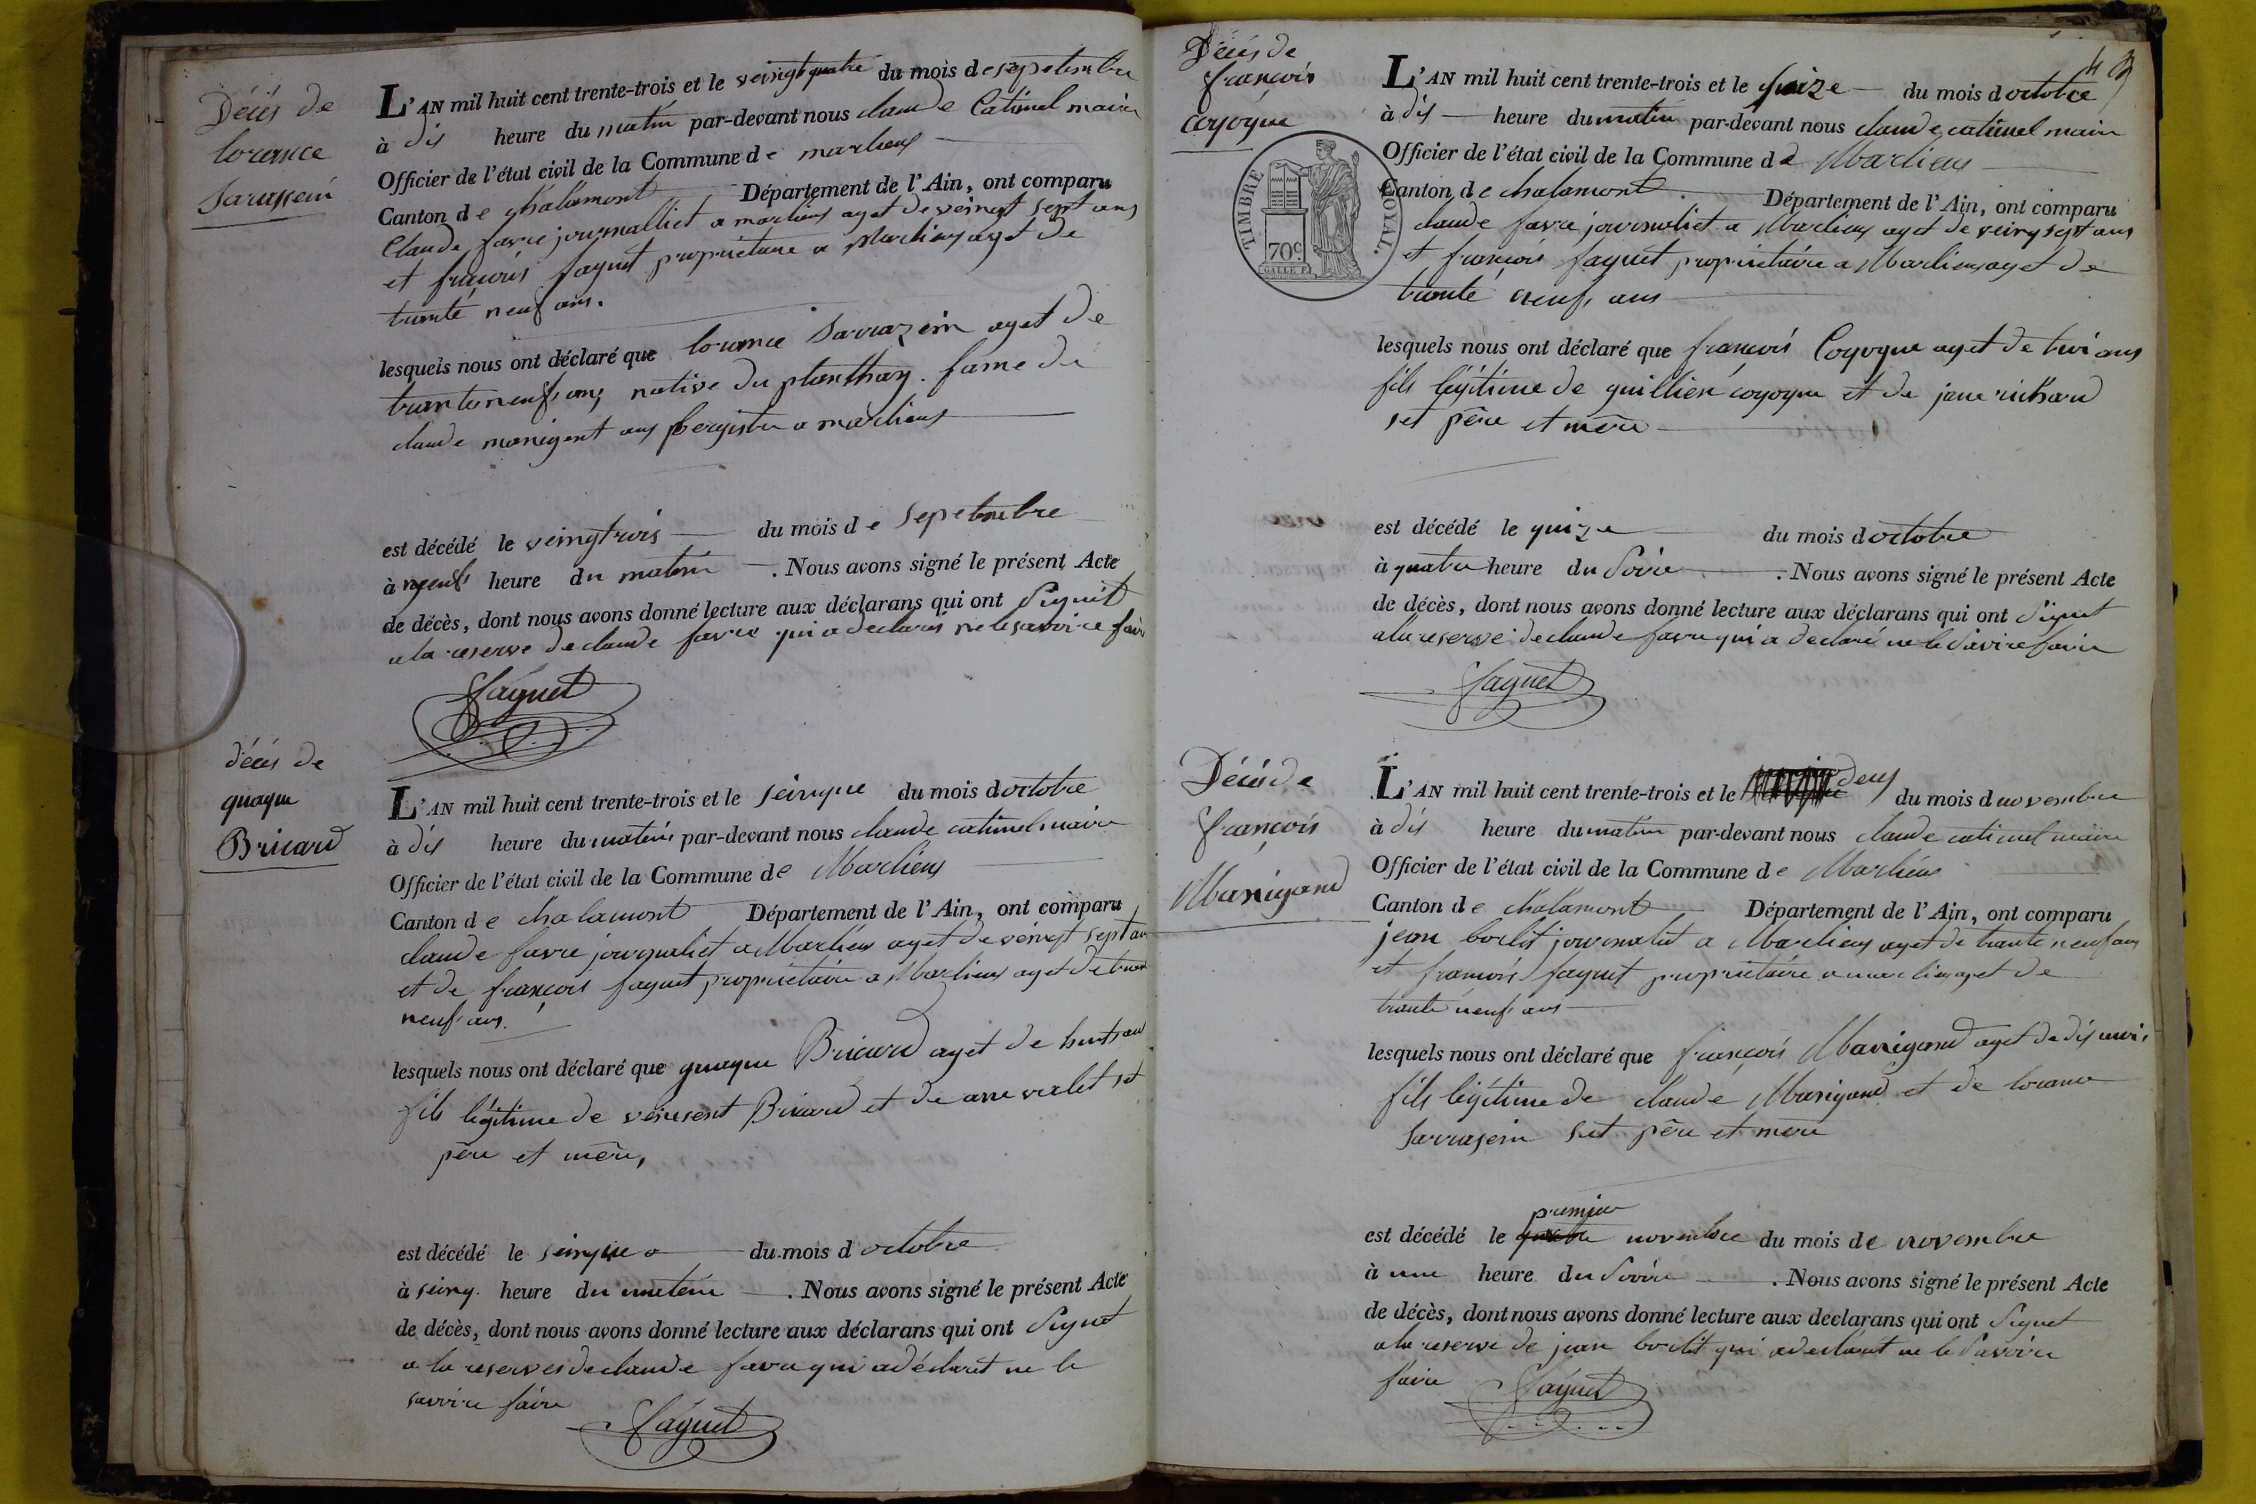 Décès de
lorance
Sarassein
L'AN mil huit cent trente-trois et le veingt quatre du mois de sepetembre
à dis heure du matin par-devant nous claude Catimel maire
Officier de l'état civil de la Commune de marlieux
Canton de chalamont Département de l'Ain, ont comparu
Claude favre journalliet a marlieux aget de veingt sept ans
et fraçois faguet propriètaire a Marlieux aget de
trante neuf ans.
lesquels nous ont déclaré que lorance Sarrazein aget de
trante neuf ans, native du planthay. fame de
claude manigent aus pberegister a marlieux
est décédé le veingtrois du mois de sepetembre
à neuf heure du matin . Nous avons signé le présent Acte
de décès, dont nous avons donné lecture aux déclarans qui ont Siguet
a la reserve de claude favre qui a declaré ne le savoire faire
faguet
décès de
quaque
Bricard
L'AN mil huit cent trente-trois et le seinque du mois d octobre
à dis heure du matin par-devant nous claude catimel maire
Officier de l'état civil de la Commune de Marlieux
Canton de chalamont Département de l'Ain, ont comparu
claude favre journaliet a Marlieux aget de veingt sept an
et de françois faguet propriètaire a Marlieux aget de tran
neuf ans.
lesquels nous ont déclaré que quaque Bricard aget de huit san
fils légitime de veinsent Bricard et de anne vialet set
père et mère,
est décédé le seinque du mois d octobre
à seinq. heure du matein . Nous avons signé le présent Acte
de décès, dont nous avons donné lecture aux déclarans qui ont Siguet
a la reserves de claude favre qui a déclaret ne le
savoire faire
faguet
43
Décès de
françois
coyoque
TIMBRE ROYAL.
70c.
L'AN mil huit cent trente-trois et le quize du mois d octobre
à dis heure du matin par-devant nous claude catimel maire
Officier de l'état civil de la Commune de Marlieux
Canton de chalamont Département de l'Ain, ont comparu
claude favre journaliet a Marlieux aget de veing sept ans
et françois faguet propriètaire a Marlieux aget de
trante neuf ans
lesquels nous ont déclaré que françois Coyoque aget de troi ans
fils légitime de guillien coyoque et de jane richard
set père et mère
est décédé le quize du mois d octobre
à quatre heure du Soire . Nous avons signé le présent Acte
de décès, dont nous avons donné lecture aux déclarans qui ont Siguet
a la reserve de claude favre qui a declaré ne le Savoire faire
faguet
Décès de
françois
Manigand
L'AN mil huit cent trente-trois et le deus du mois d novembre
à dis heure du matin par-devant nous claude catimel maire
Officier de l'état civil de la Commune de Marlieux
Canton de chalamont Département de l'Ain, ont comparu
jean borlit journalit a Marlieux aget de trante neuf ans
et françois faguet propriètaire a marlieux aget de
trante neuf ans
lesquels nous ont déclaré que françois Manigand aget de dis mois
fils légitime de claude Manigand et de lorance
Sarrasein set père et mère
premier
est décédé le novembre du mois de novembre
à une heure du Soire . Nous avons signé le présent Acte
de décès, dont nous avons donné lecture aux declarans qui ont Siguet
a la reserve de jean borlit qui a declaret ne le Savoire
faire
faguet